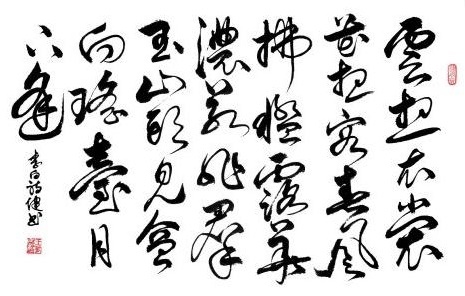 雲想衣裳
花想容春風
拂檻露華
濃若非群
玉山頭見會
向瑤臺月
下逢
李白詩 書